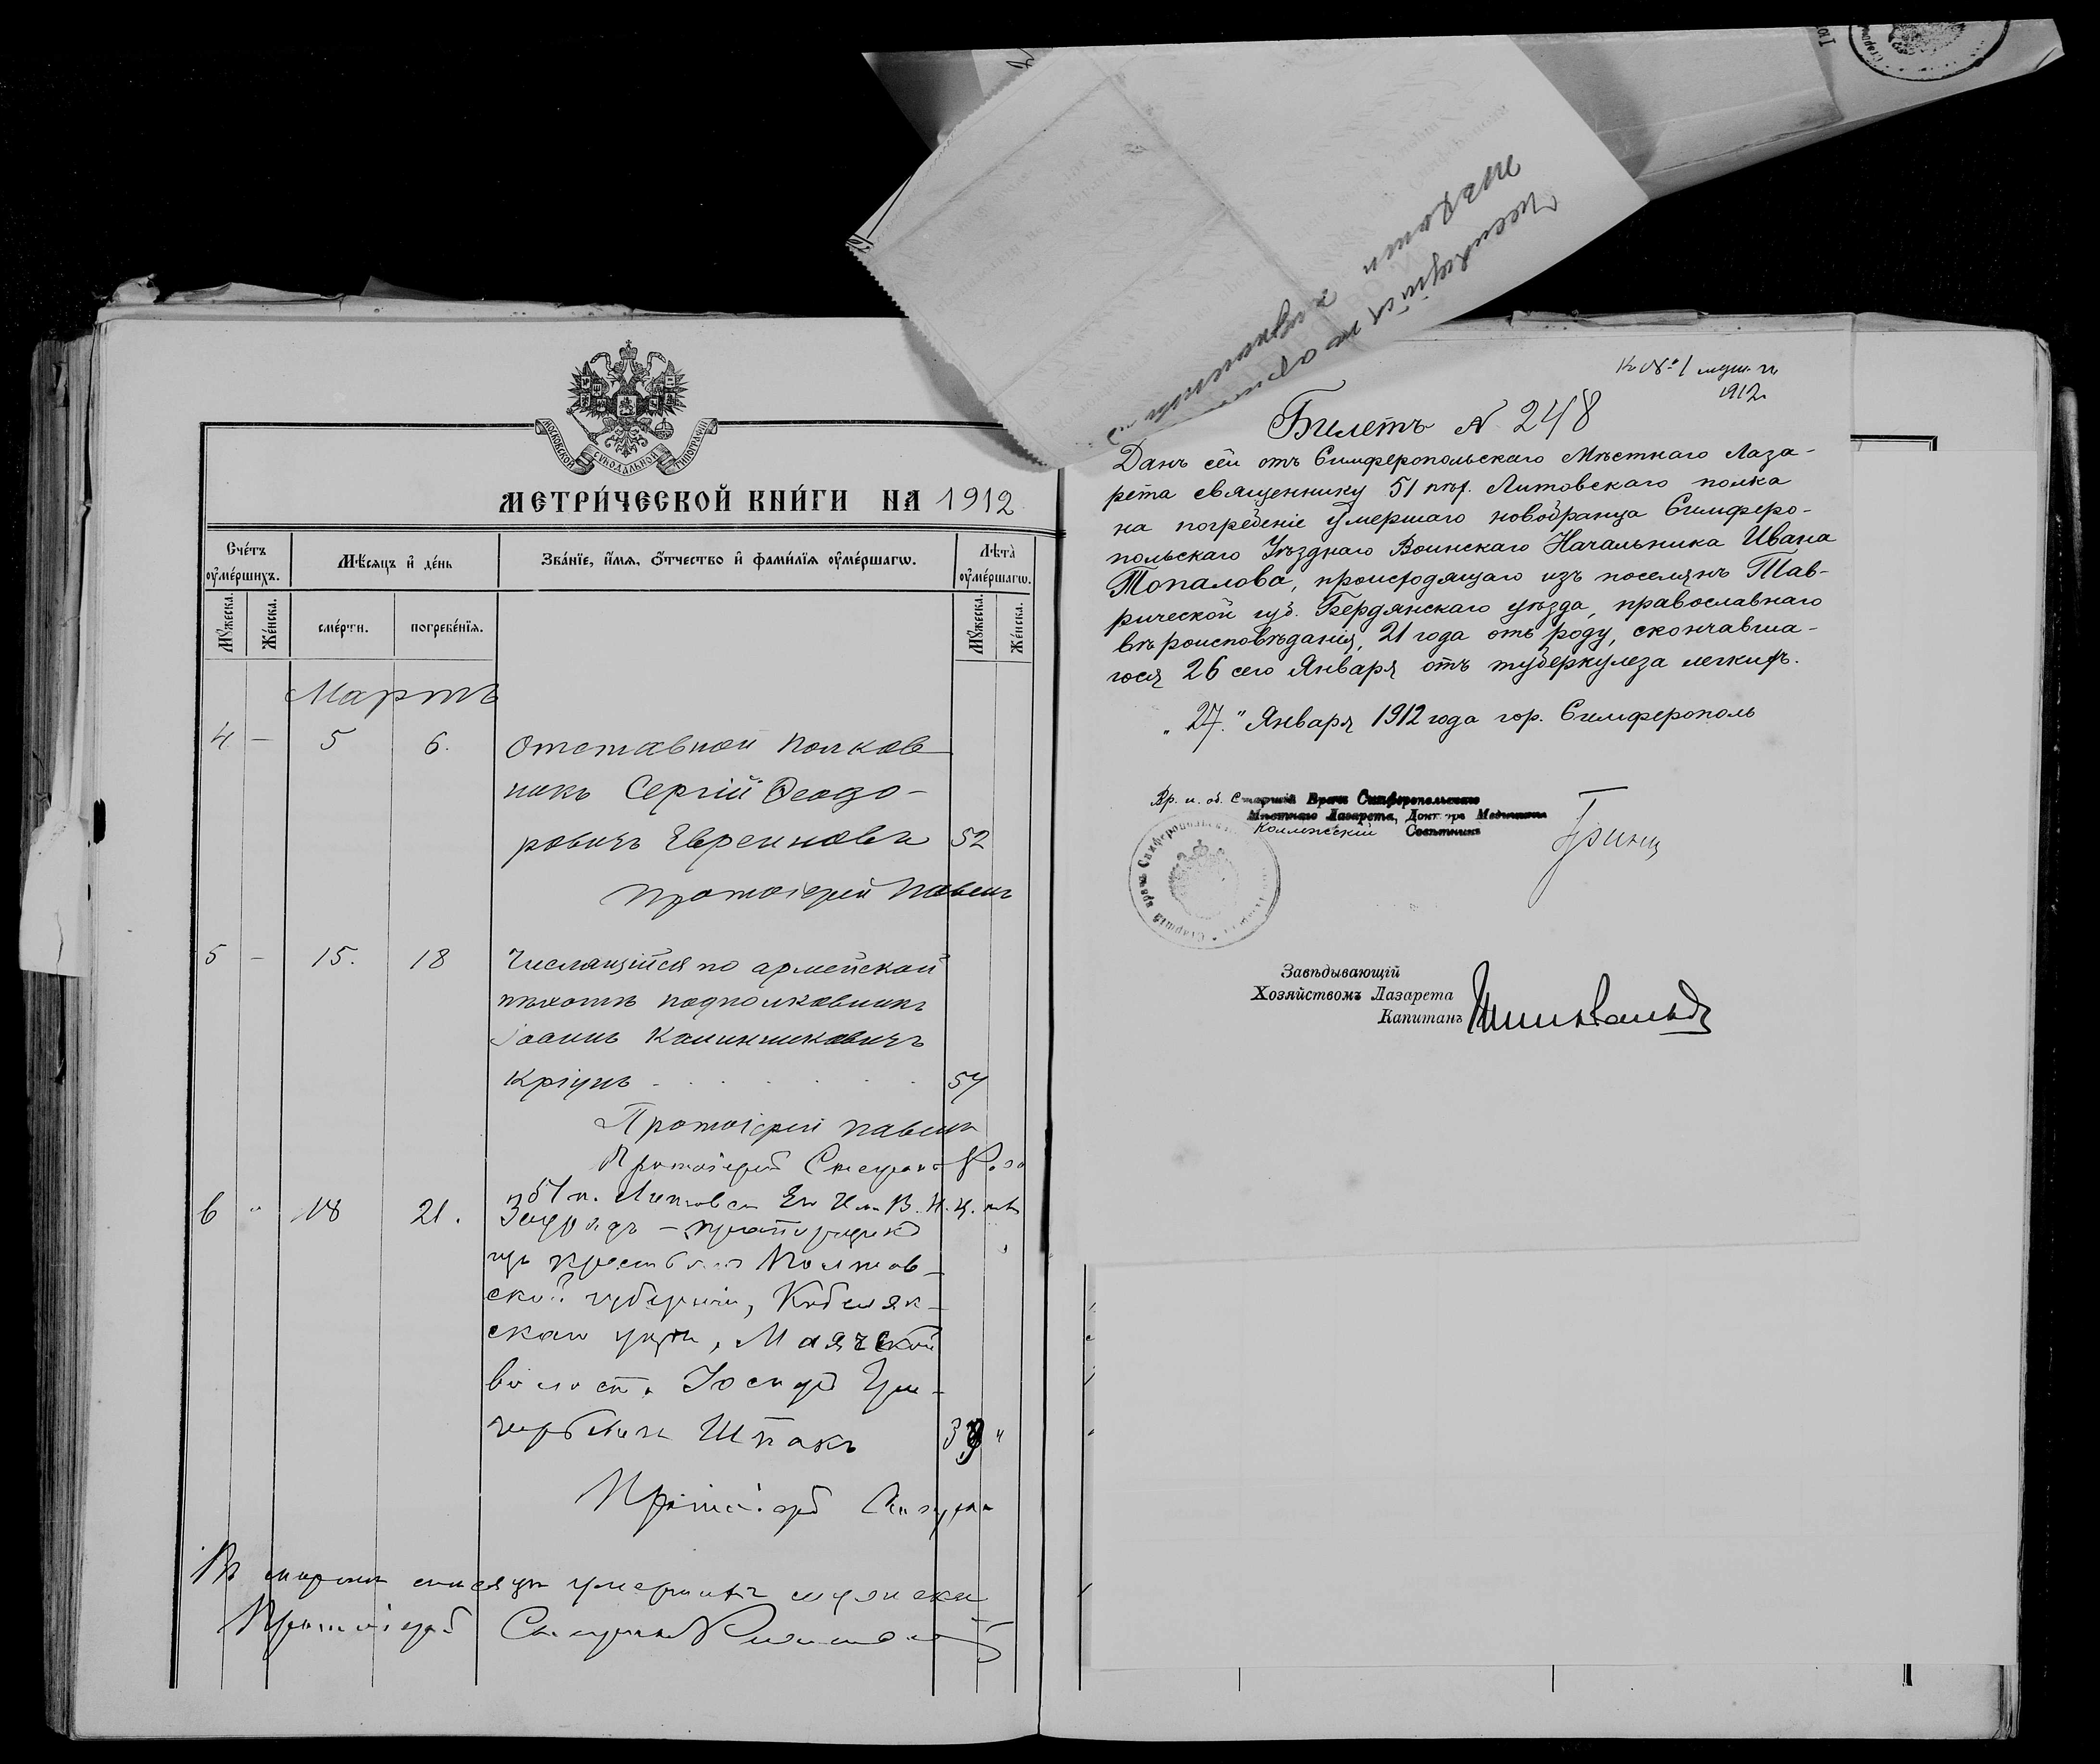 МОСКОВСКОЙ СУНОДАЛЬНОЙ ТИПОГРАФІИ
МЕТРИ́ЧЕСКОЙ КНИ́ГИ НА 1912
Счéтъ оу҆мéршихъ.
Мѣ́сяцъ и҆ дéнь
Звáніе, и҆́мя, ѻ҆́тчество и҆ фами́лія оу҆мéршагѡ.
Лѣтà оу҆мéршагѡ.
Мꙋ́жеска.
Жéнска.
смéрти.
погребéнія.
Мꙋ́жеска.
Жéнска.
Мартъ
4 — 5 6. Отставной полков
никъ Сергій Ѳеодо-
ровичъ Евреиновъ 52
Протоіерей Павелъ
5 — 15. 18 Числящійся по армейской
пѣхотѣ подполковникъ
Іоаннъ Калинниковичъ
Кріунъ 54
Протоіерей Павелъ
Протоіерей
6 " 18 21. 51 п. Литовск Его Им. В. Н. Ц.
Зауряд-прапорщикъ
изъ крестьянъ Полтав-
ской губерніи, Кобеляк-
скаго уѣзда, Маячской
волости Іосифъ Гри-
горьевичъ Шпакъ
Протоіерей
Въ мартѣ мѣсяцѣ умершихъ мужска
Протоіерей
Къ № 1
1912
Билетъ N 248
Данъ сей отъ Симферопольскаго Мѣстнаго Лаза-
рета священнику 51 пѣх. Литовскаго полка
на погребеніе умершаго новобранца Симферо-
польскаго Уѣзднаго Воинскаго Начальника Ивана
Топалова, происходящаго изъ поселянъ Тав-
рической губ. Бердянскаго уѣзда, православнаго
вѣроисповѣданія, 21 года отъ роду, скончавша-
гося 26 сего Января отъ туберкулеза легкихъ.
„27." Января 1912 года гор. Симферополь
Вр. и. об. Старшій Врачъ Симферопольскаго
Мѣстнаго Лазарета, Докторъ Медицины
Коллежскій Совѣтникъ
Завѣдывающій
Хозяйствомъ Лазарета
Капитанъ